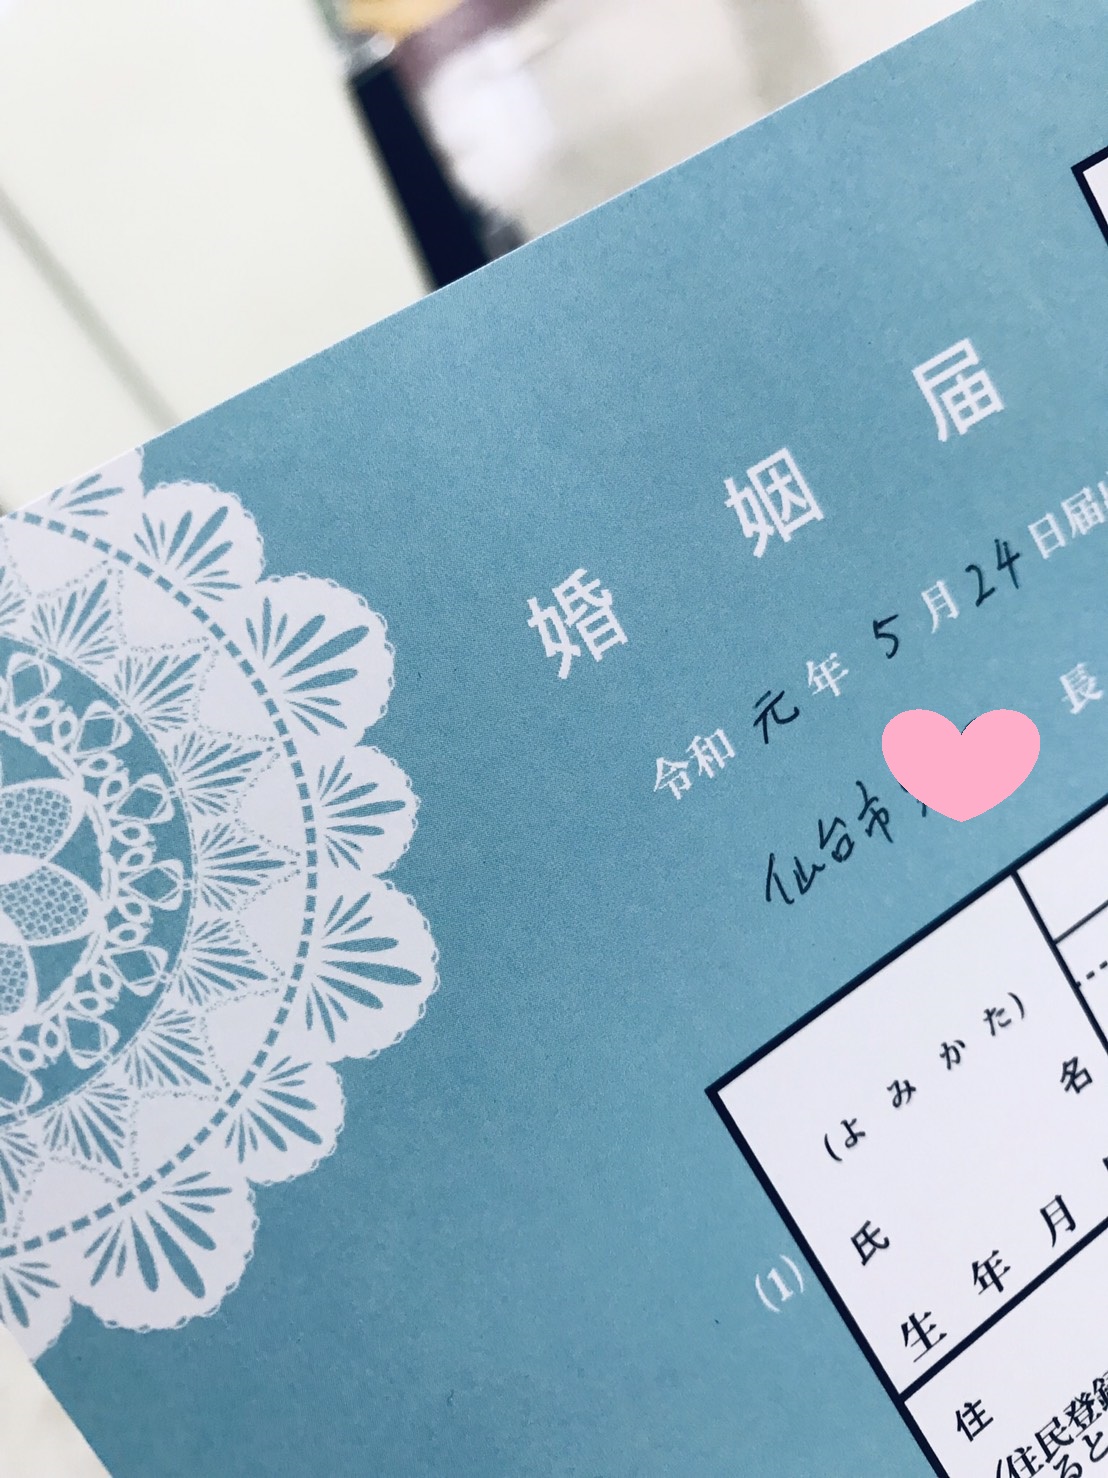 婚姻届
令和元年5月24日届
仙台市 長
(よみかた)
氏名
(1)
生年月
住
(住民登録
ると